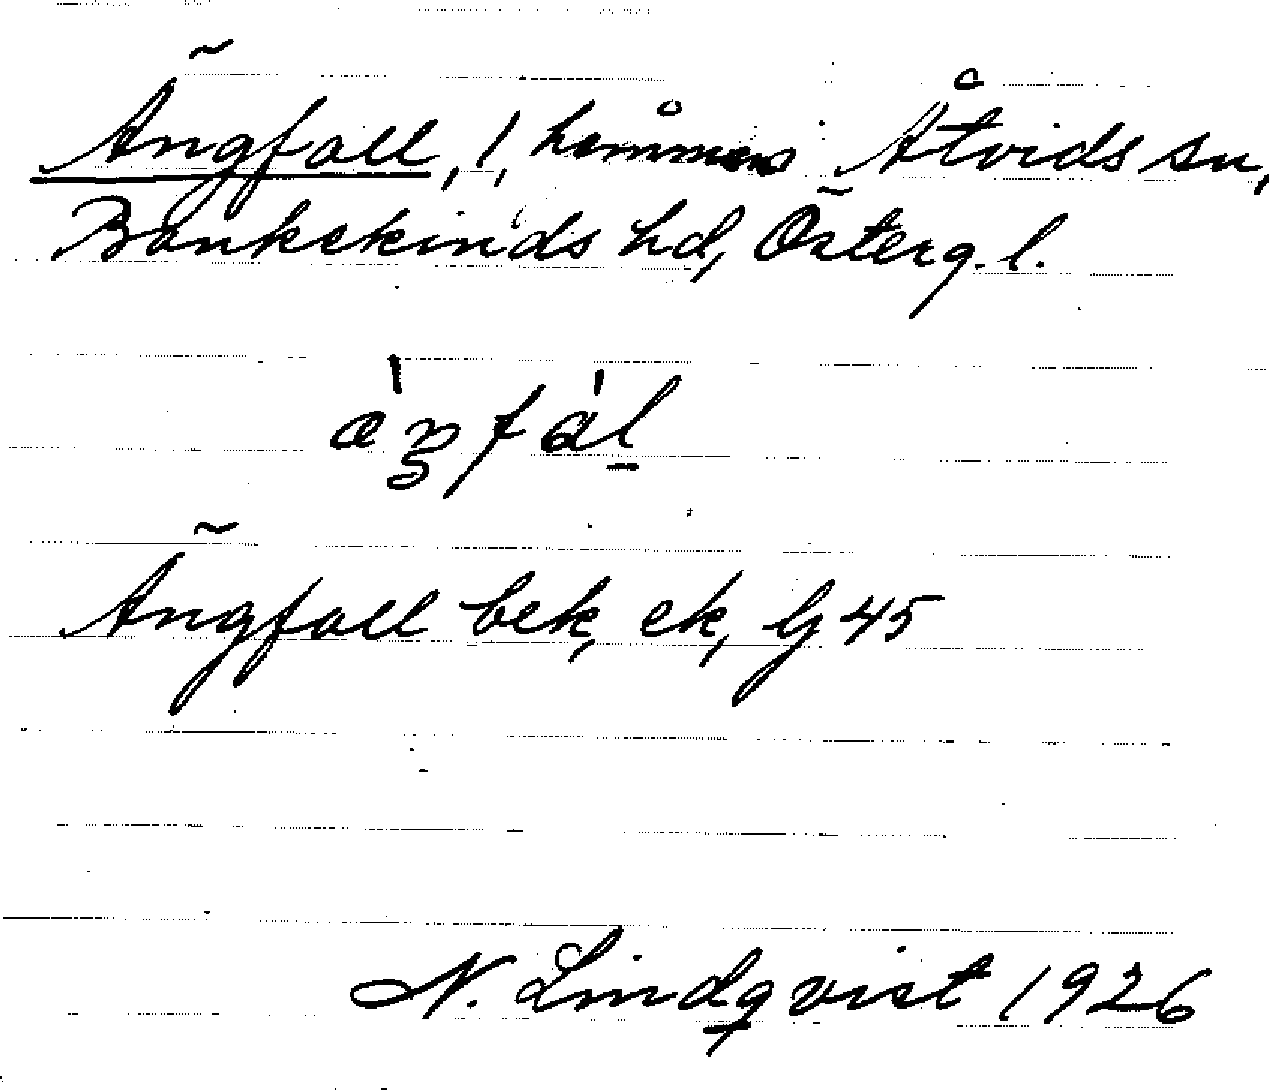 Ängfall, 1, hemman Åtvids sn,
Bankekinds hd, Österg. l.
àŋfàl
Ängfall bek, ek, Gj 45
N. Lindqvist 1926